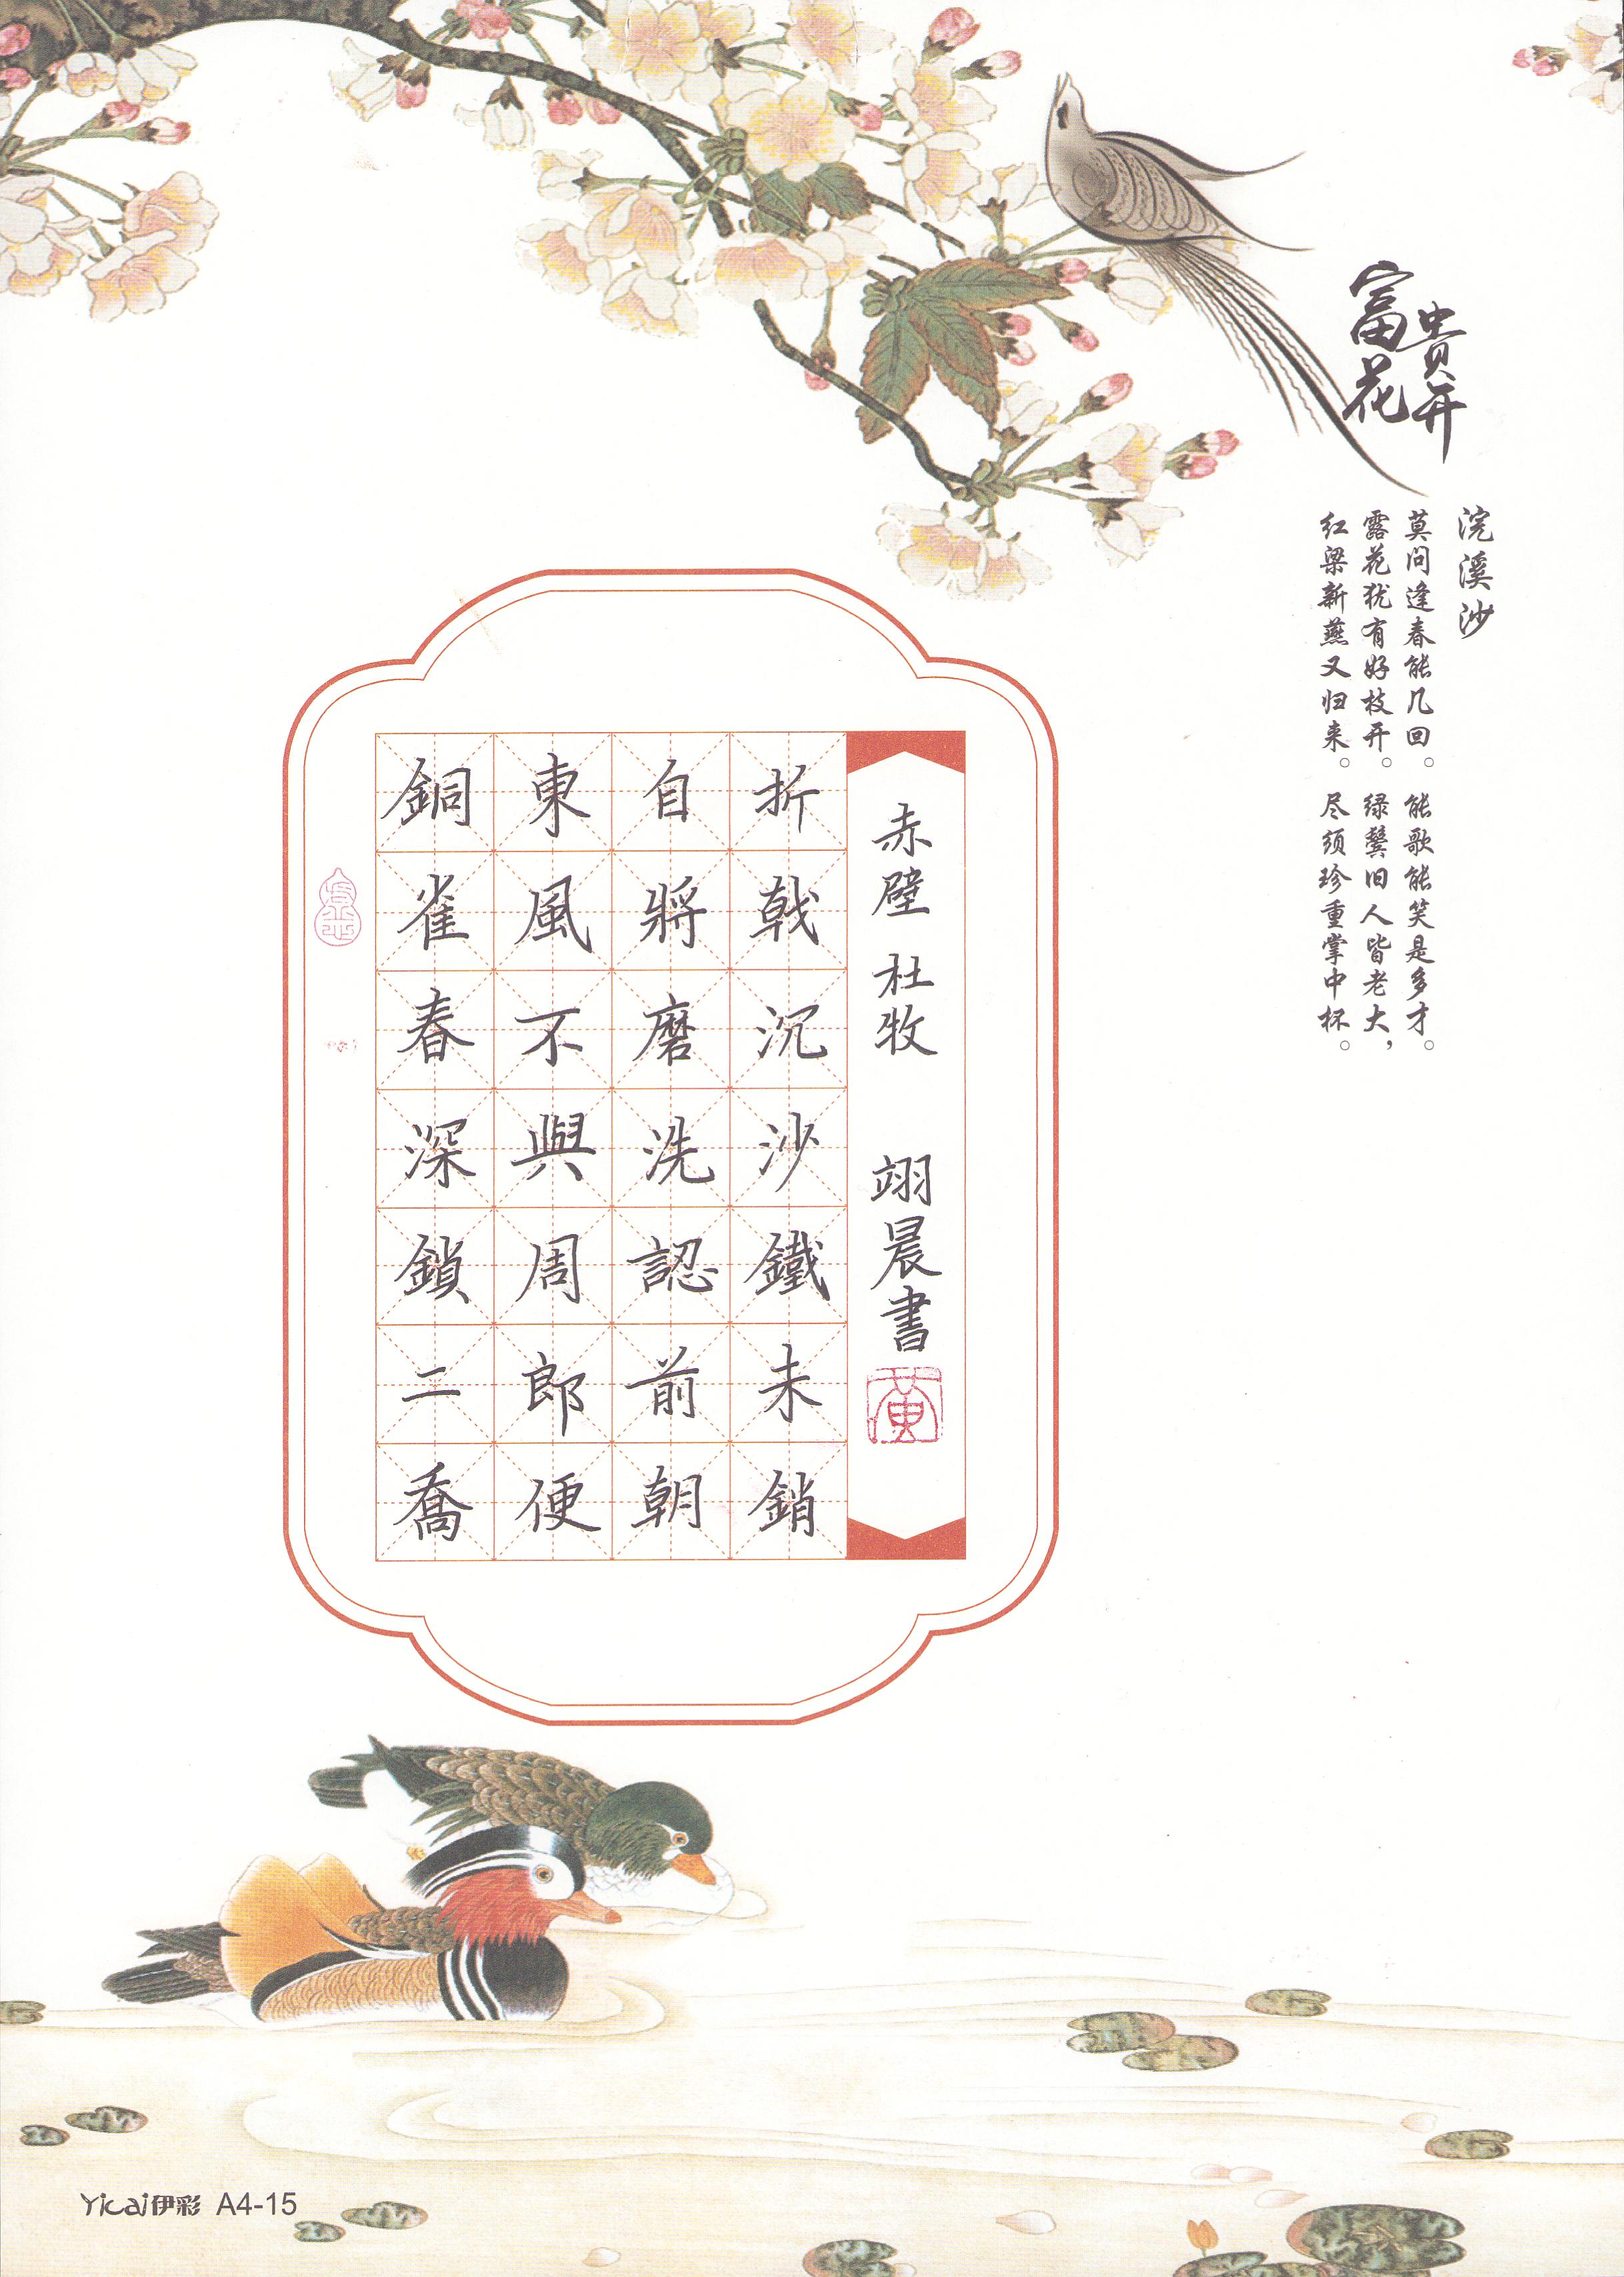 富貴花开
浣溪沙
莫问逢春能几回。能歌能笑是多才。
露花犹有好枝开。绿鬓旧人皆老大,
红梁新燕又归来。尽须珍重掌中杯。
赤壁 杜牧 翊晨書
黄
折戟沉沙鐵未銷
自將磨洗認前朝
東風不與周郎便
銅雀春深鎖二喬
Yicai伊彩 A4-15